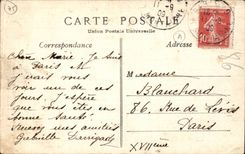 CARTE POSTALE
Union Postale Universelle
Correspondance
Adresse
Chère Marie, Je suis
à Paris et
j'irais vous
voir un de ces
jours. J'espère
que vous êtes en
bonne santé.
mes amitiés
Madame
Blanchard
86 Rue de Lévis
Paris
XVIIème